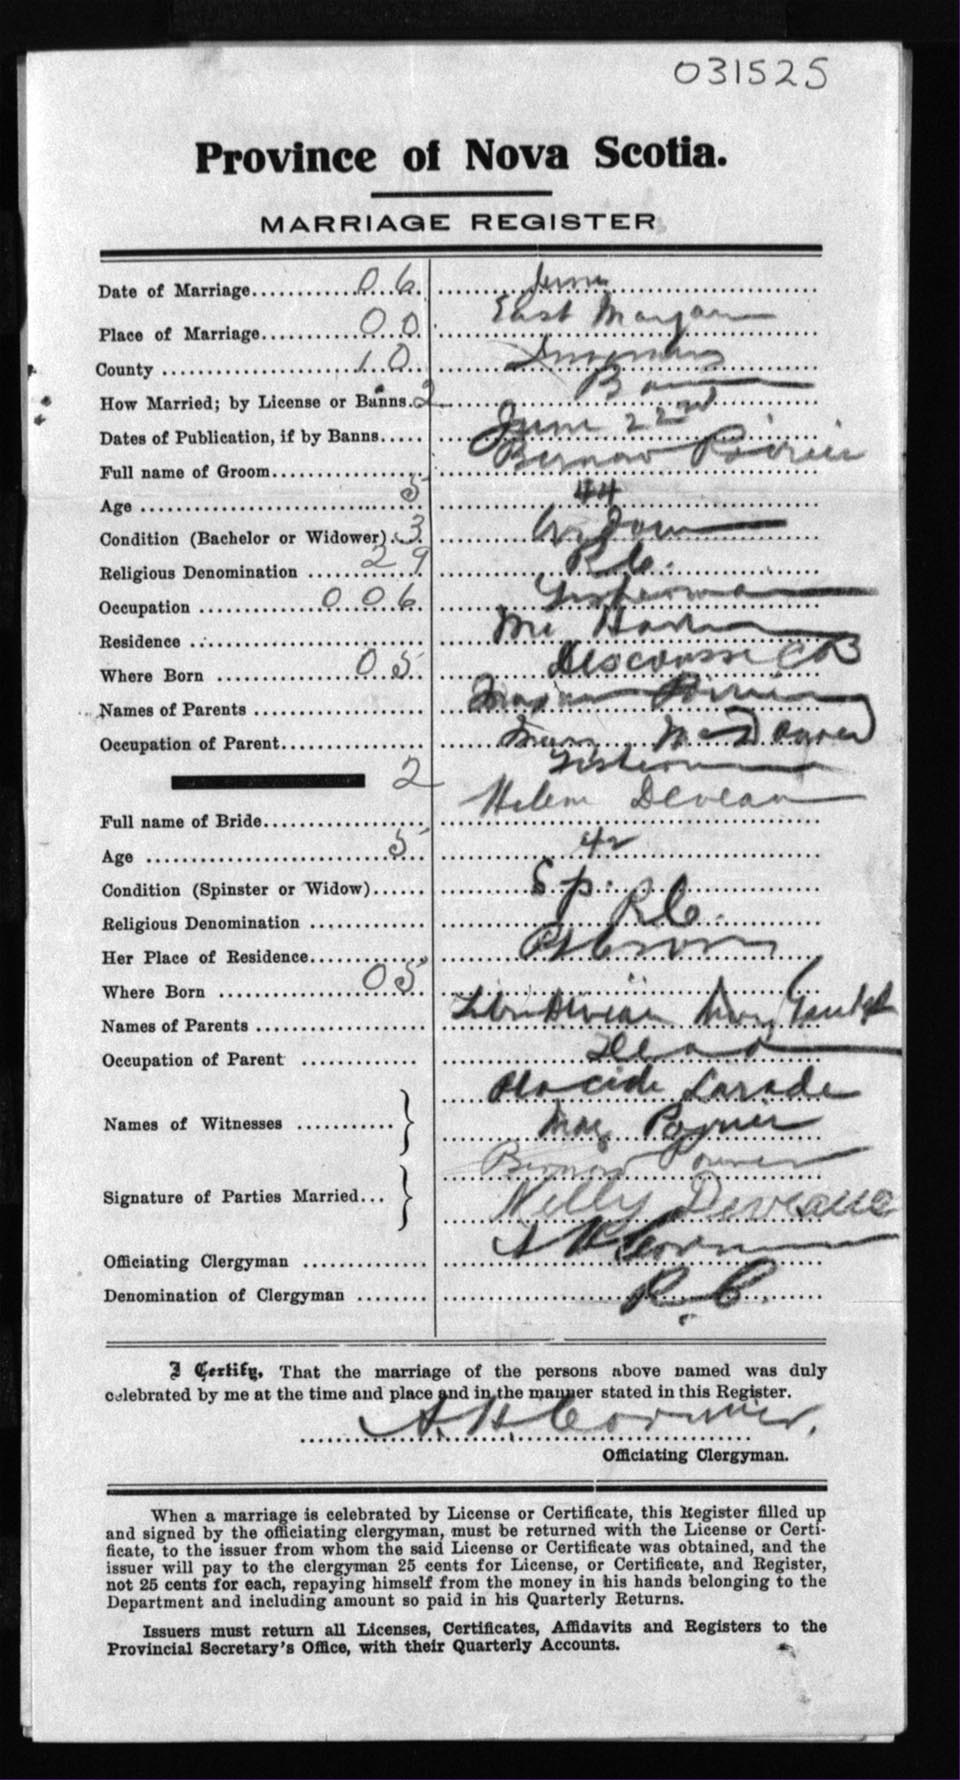 031525
Province of Nova Scotia.
MARRIAGE REGISTER
Date of Marriage 06 June
Place of Marriage 00 East Margaree
County 10 Inverness
How Married; by License or Banns 2 Banns
Dates of Publication, if by Banns June 22nd
Full name of Groom Bernard Poirier
Age 5 44
Condition (Bachelor or Widower) 3 Widower
Religious Denomination 29 R.C.
Occupation 006 Fisherman
Residence
Where Born 05 Descousse CB
Names of Parents Poirier
Occupation of Parent Fisherman
2
Full name of Bride Helene Deveau
Age 5 42
Condition (Spinster or Widow) Sp.
Religious Denomination R.C.
Her Place of Residence
Where Born 05 "
Names of Parents Deveau
Occupation of Parent Dead
Names of Witnesses Placide Larade
May Poirier
Signature of Parties Married Bernard Poirier
Nelly Deveaue
Officiating Clergyman A H Cormier
Denomination of Clergyman R.C.
I Certify, That the marriage of the persons above named was duly
celebrated by me at the time and place and in the manner stated in this Register.
A. H. Cormier.
Officiating Clergyman.
When a marriage is celebrated by License or Certificate, this Register filled up
and signed by the officiating clergyman, must be returned with the License or Certi-
ficate, to the issuer from whom the said License or Certificate was obtained, and the
issuer will pay to the clergyman 25 cents for License, or Certificate, and Register,
not 25 cents for each, repaying himself from the money in his hands belonging to the
Department and including amount so paid in his Quarterly Returns.
Issuers must return all Licenses, Certificates, Affidavits and Registers to the
Provincial Secretary's Office, with their Quarterly Accounts.